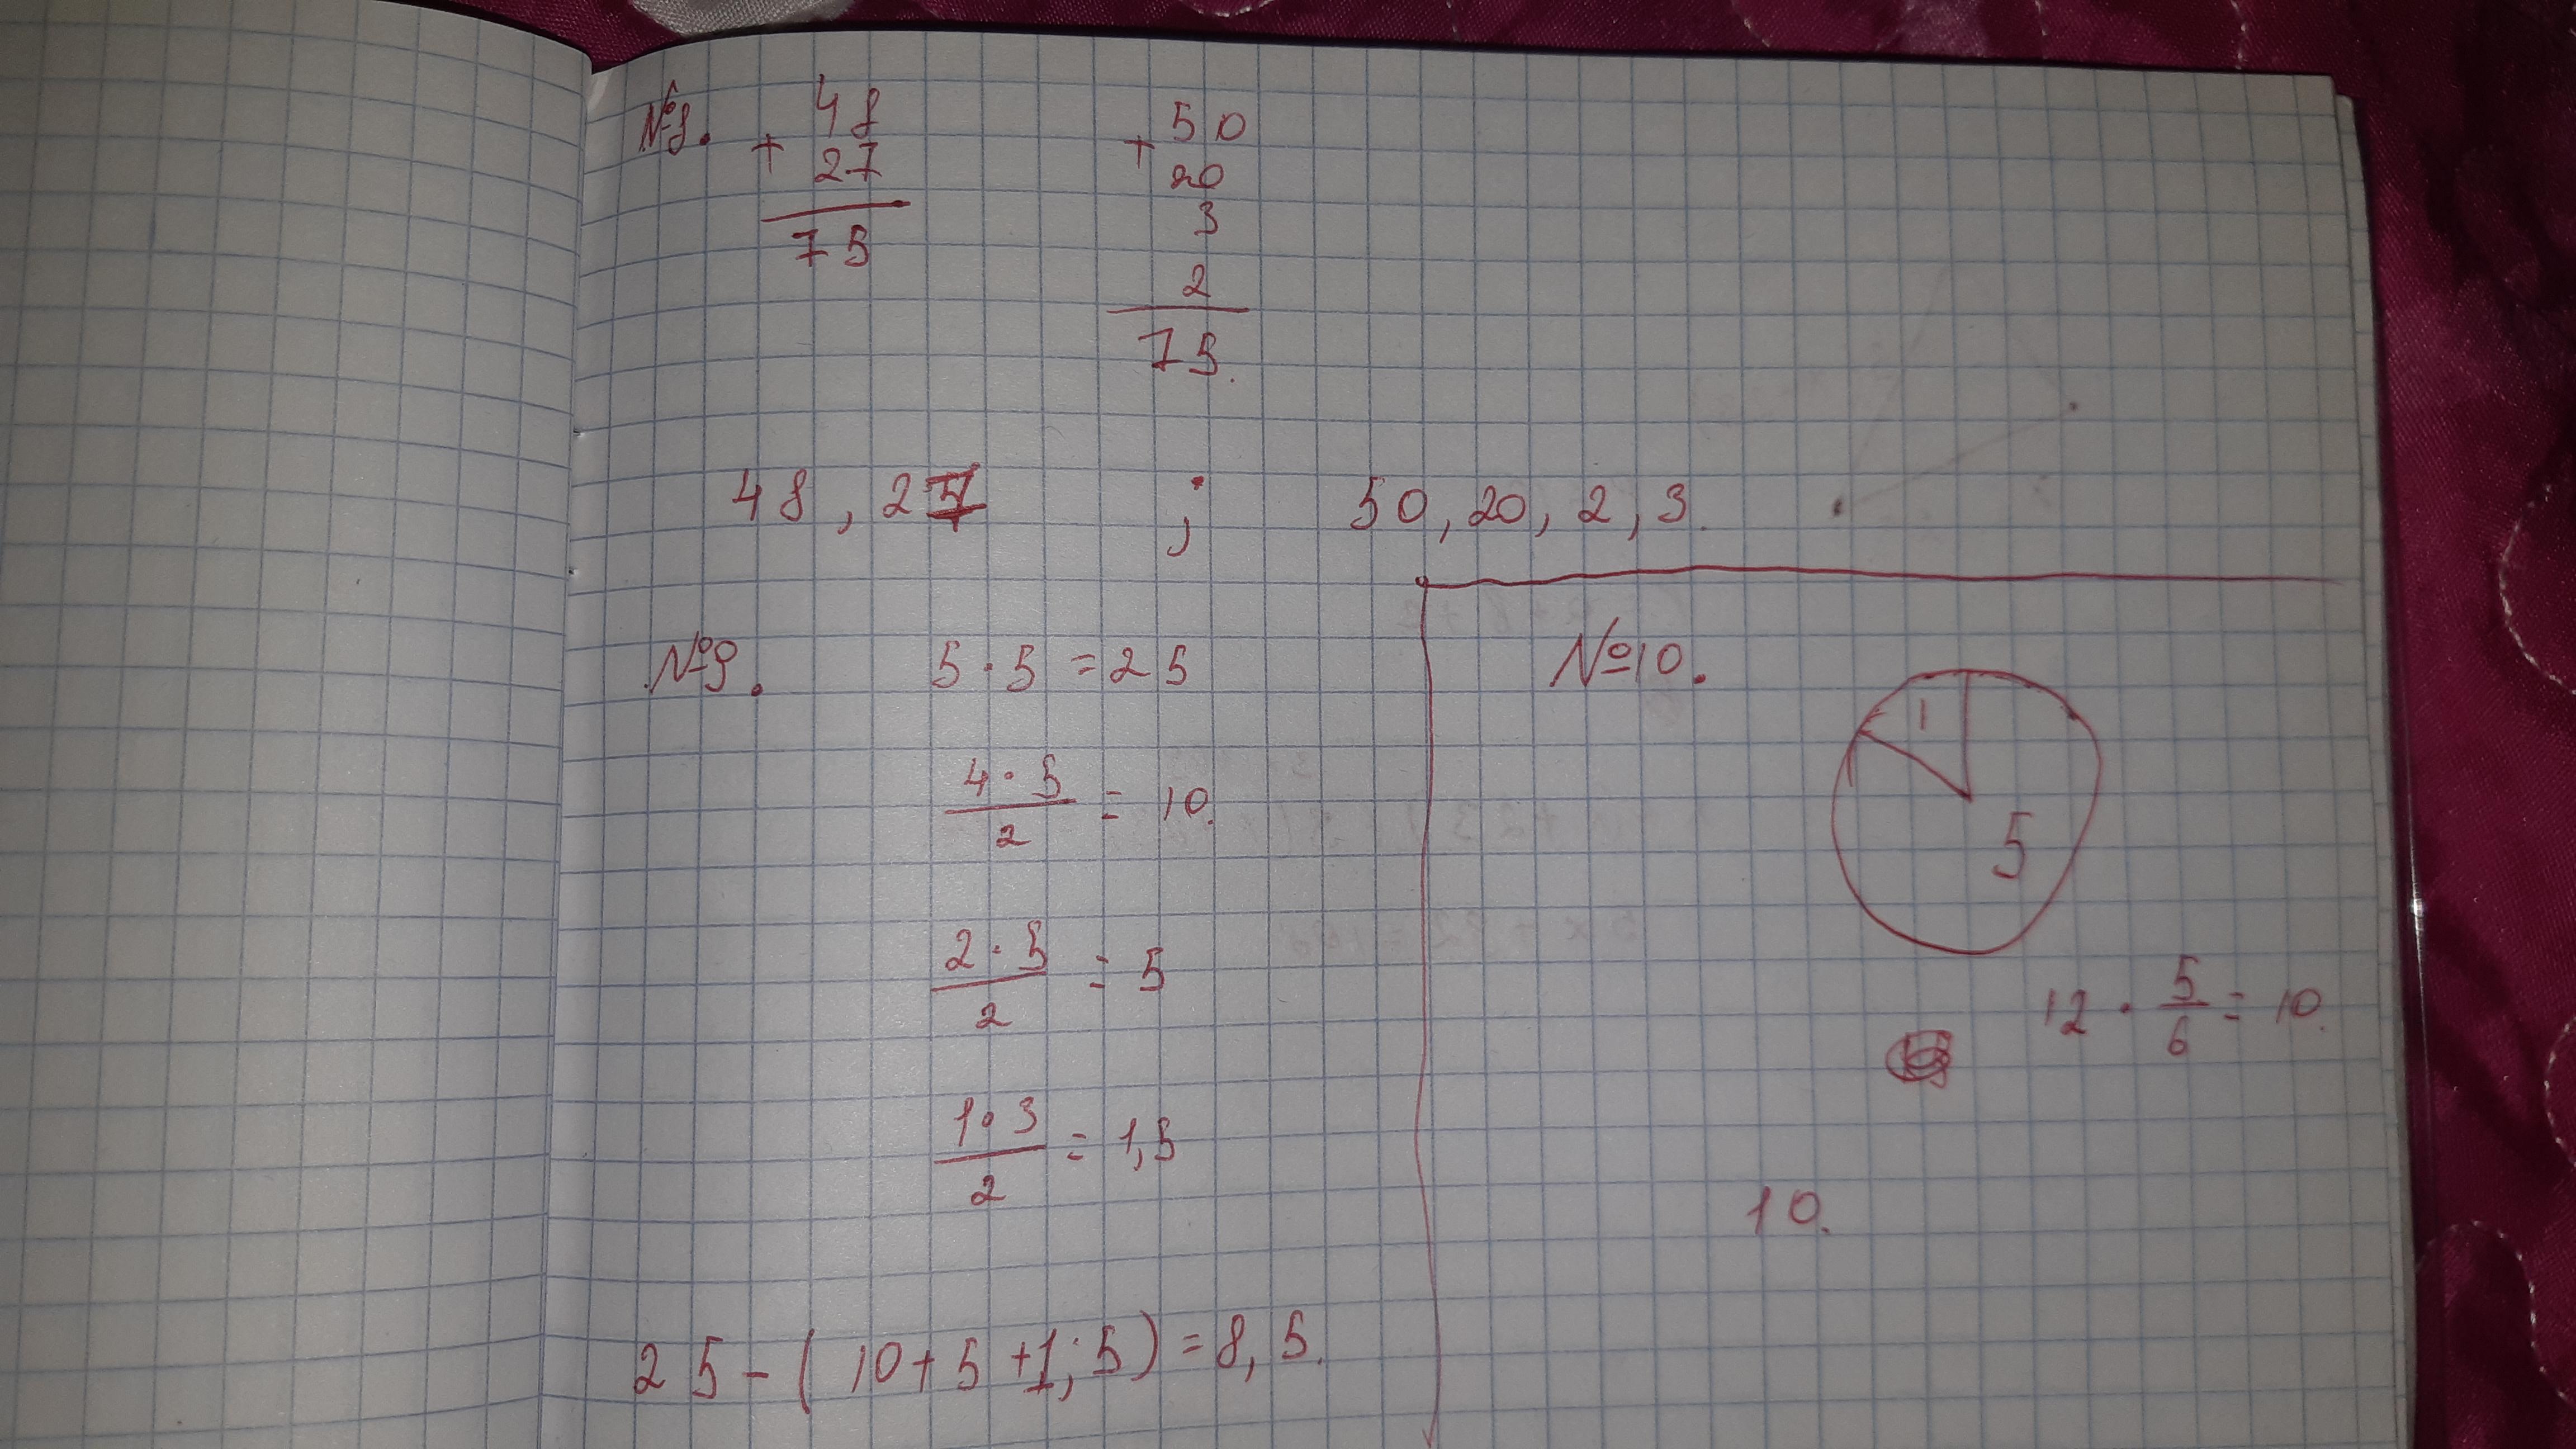 №8. 48 + 50
+ 27 20
75 3
2
75.
48, 27 ; 50, 20, 2, 3.
№9. 5 · 5 = 25
4 · 5 / 2 = 10.
2 · 5 / 2 = 5
1 · 3 / 2 = 1,5
25 - ( 10 + 5 + 1,5 ) = 8,5.
№10.
1
5
12 · 5/6 = 10.
10.